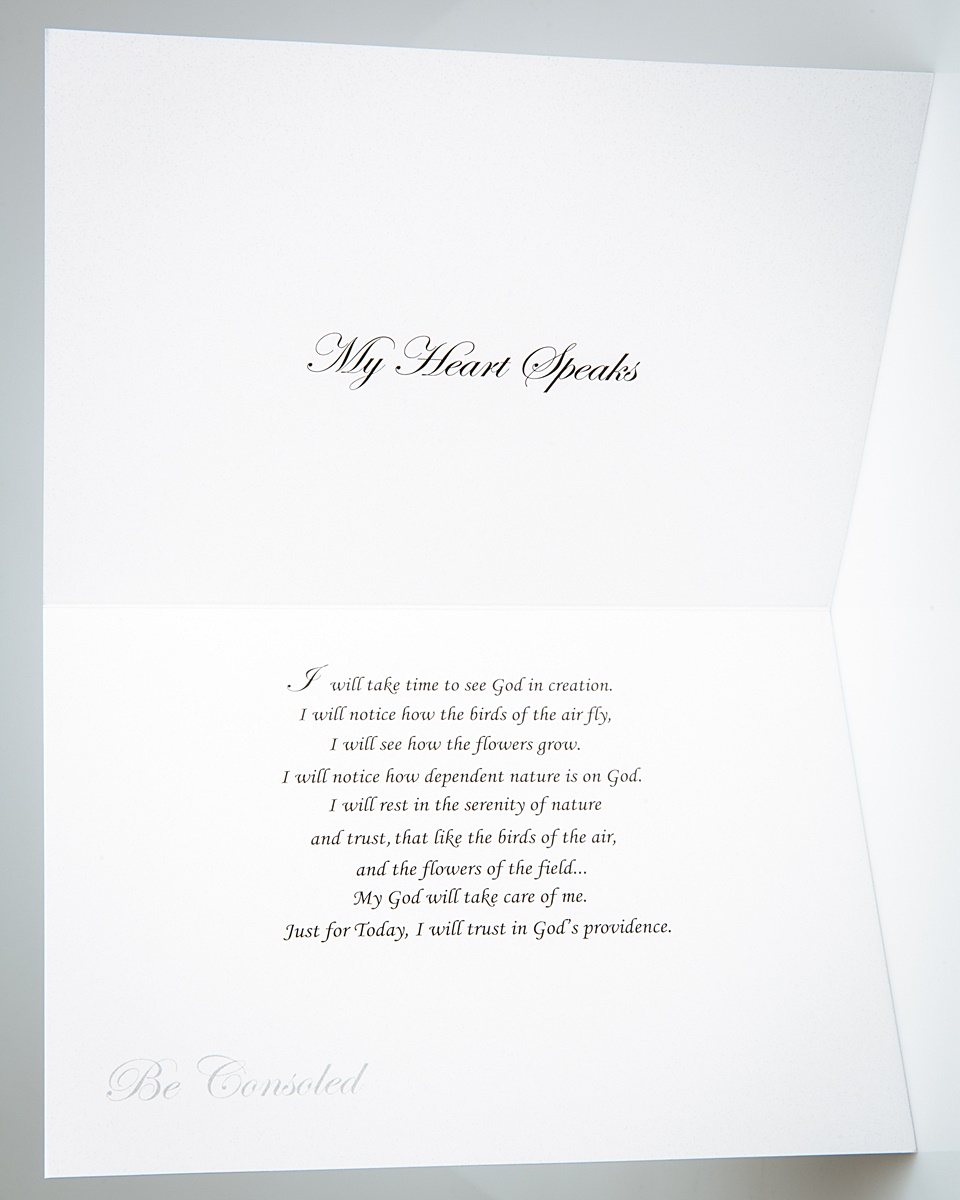 My Heart Speaks
I will take time to see God in creation.
I will notice how the birds of the air fly,
I will see how the flowers grow.
I will notice how dependent nature is on God.
I will rest in the serenity of nature
and trust, that like the birds of the air,
and the flowers of the field...
My God will take care of me.
Just for Today, I will trust in God's providence.
Be Consoled